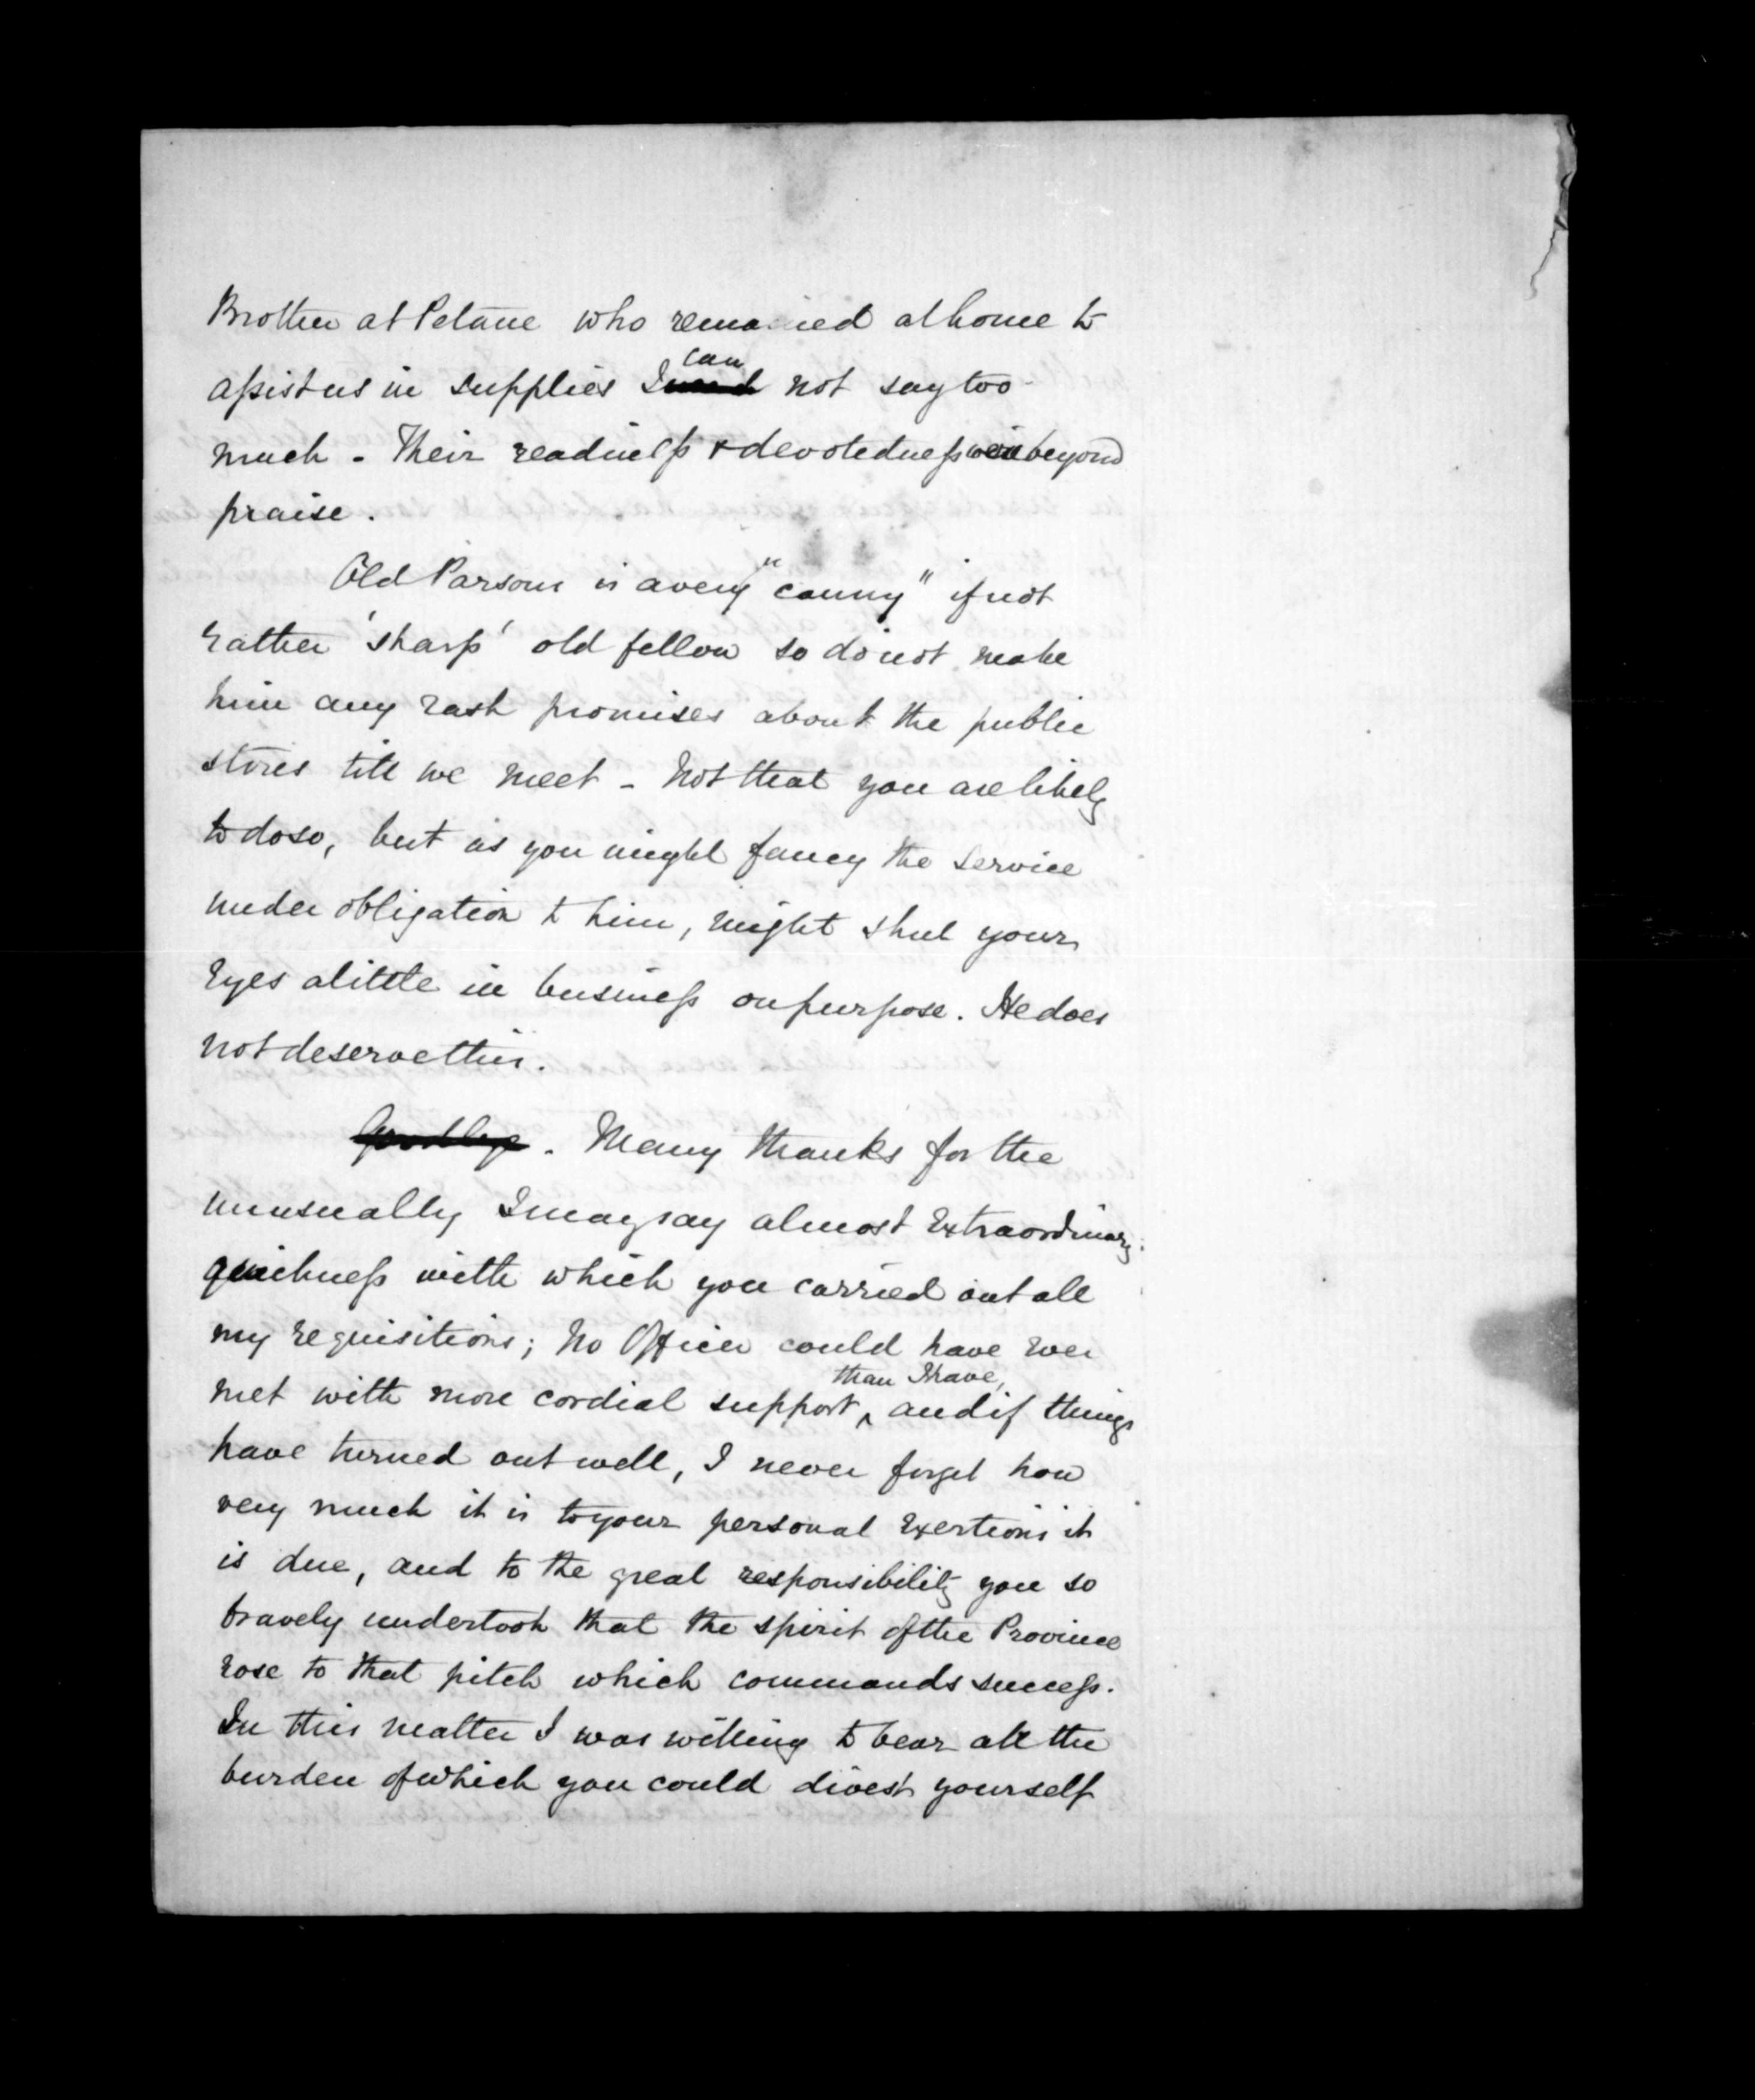 Brother at Petane who remained at home to
assist us in supplies I can not say too
much - Their readiness & devotedness were beyond
praise.
Old Parsons is a very "canny" if not
rather 'sharp' old fellow so do not make
him any rash promises about the public
stores till we meet - Not that you are likely
to do so, but as you might fancy the service
under obligation to him, might shut your
Eyes a little in business on purpose. He does
not deserve this.
Goodbye. Many thanks for the
unusually I may say almost Extraordinary
quickness with which you carried out all
my requisitions; No Officer could have ever
met with more cordial support than I have, and if things
have turned out well, I never forget how
very much it is to your personal Exertions it
is due, and to the great responsibility you so
bravely undertook that the spirit of the Province
rose to that pitch which commands success.
In this matter I was willing to bear all the
burden of which you could divest yourself